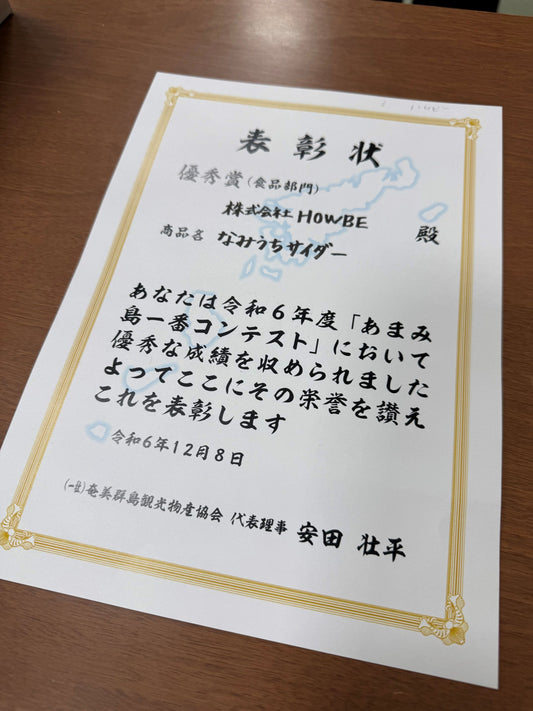 表彰状
優秀賞(食品部門)
株式会社HOWBE 殿
商品名 なみうちサイダー
あなたは令和6年度「あまみ
島一番コンテスト」において
優秀な成績を収められました
よってここにその栄誉を讃え
これを表彰します
令和6年12月8日
(一社)奄美群島観光物産協会 代表理事 安田 壮平